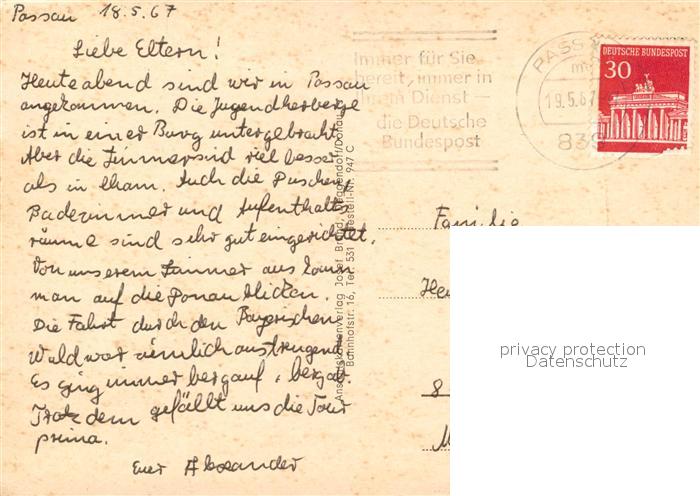 Passau 18.5.67
Liebe Eltern!
Heute abend sind wir in Passau
angekommen. Die Jugendherberge
ist in einer Burg untergebracht.
Aber die Zimmer sind viel besser
als in Cham. Auch die Duschen,
Badezimmer und Aufenthalts
räume sind sehr gut eingerichtet.
Von unserem Zimmer aus kann
man auf die Donau blicken.
Die Fahrt durch den Bayerischen
Wald war ziemlich anstrengend.
Es ging immer bergauf, bergab.
Trotzdem gefällt uns die Tour
prima.
Euer Alexander
Ansichtskartenverlag Josef Deggendorf/Donau
Bahnhofstr. 16, Tel. 531 Bestell-Nr. 947 C
Immer für Sie
bereit, immer in
Dienst –
die Deutsche
Bundespost
PASS
19.5.67
839
DEUTSCHE BUNDESPOST
30
Familie
He
8
M
privacy protection
Datenschutz